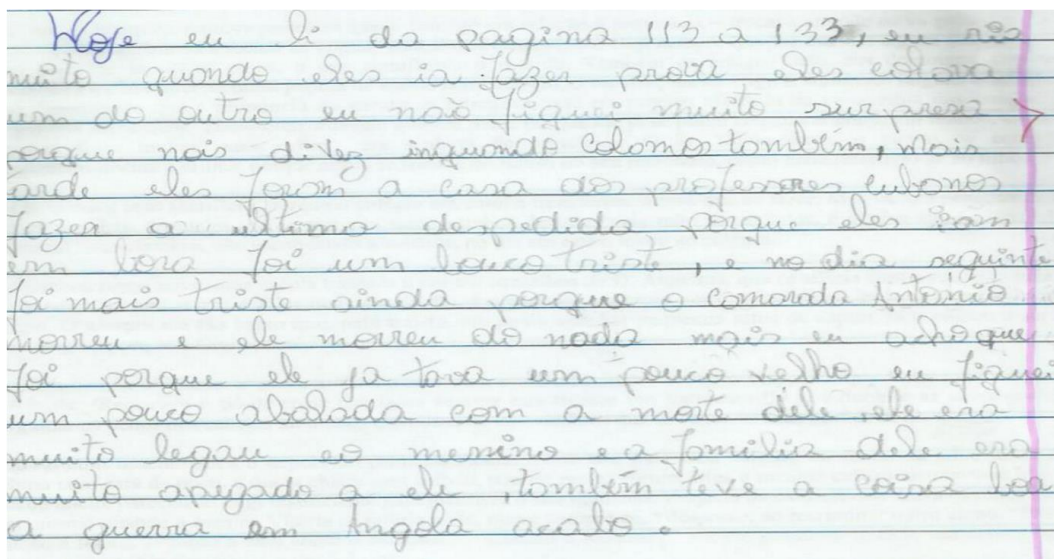 Hoje eu li da pagina 113 a 133, eu rio
muito quando eles ia fazer prova eles colava
um do outro eu não fiquei muito surpresa
porque nois di vez inquando colamos também, mais
tarde eles foram a casa dos professores cubanos
fazer a ultima despedida porque eles iram
em bora foi um pouco triste, e no dia seguinte
foi mais triste ainda porque o camarada Antônio
morreu e ele morreu do nada mais eu acho que
foi porque ele ja tava um pouco velho eu fiquei
um pouco abalada com a morte dele, ele era
muito legau eo menino e a familia dele era
muito apegado a ele, também teve a coisa boa
a guerra em Angola acabo.